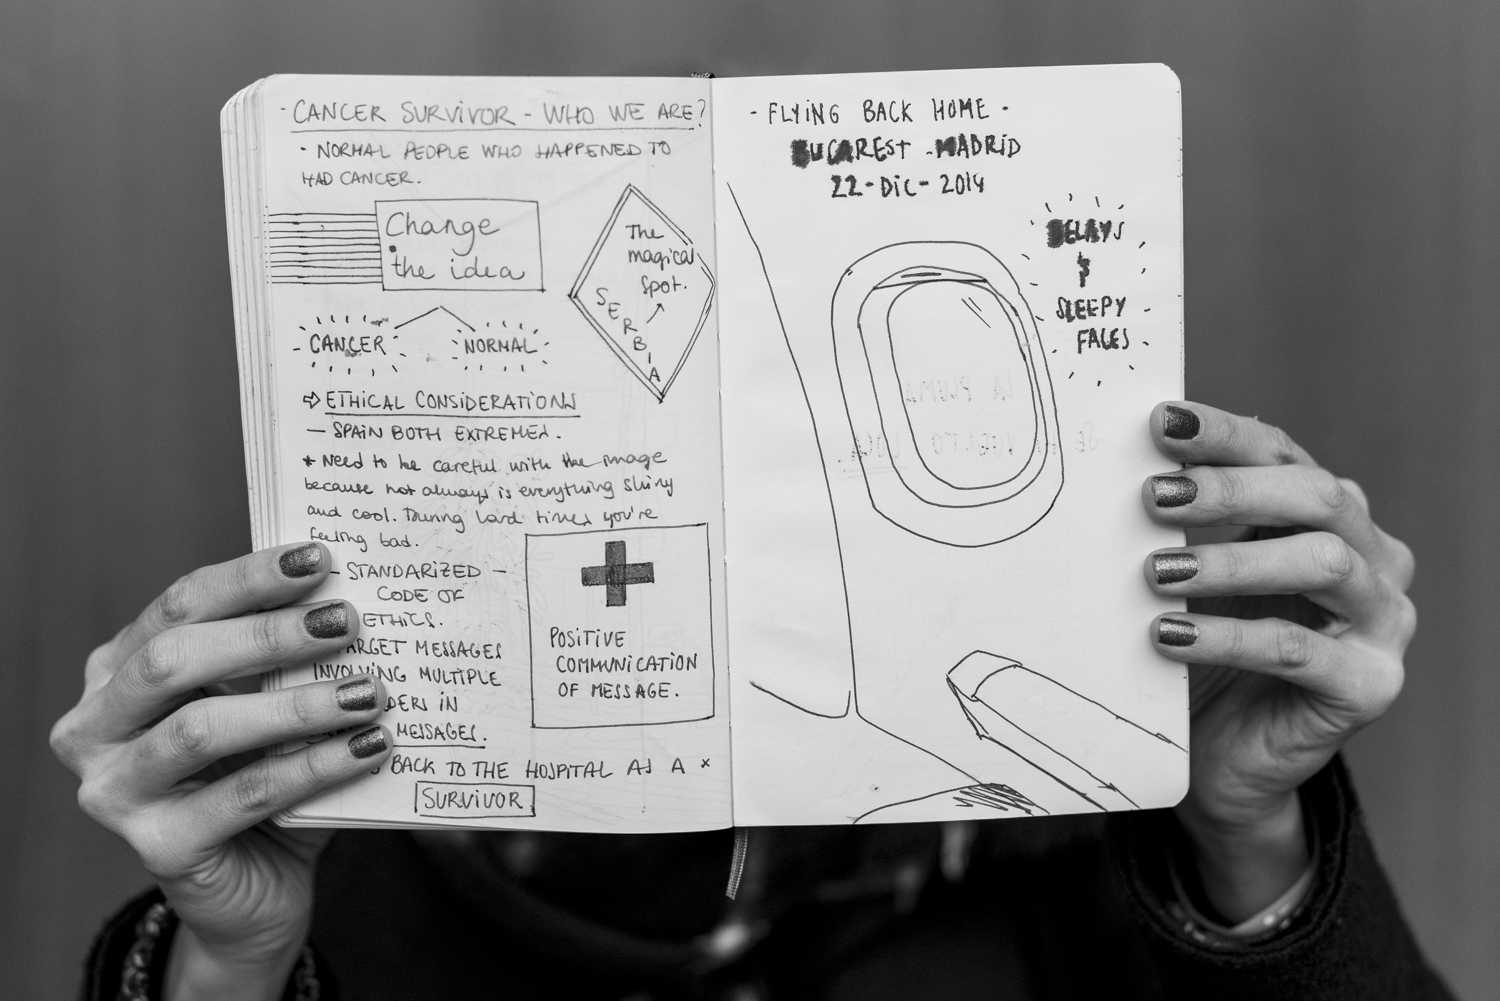 - CANCER SURVIVOR - WHO WE ARE?
· NORMAL PEOPLE WHO HAPPENED TO
HAD CANCER.
Change
the idea
The
magical
spot.
SERBIA
CANCER
NORMAL
⇨ ETHICAL CONSIDERATIONS
— SPAIN BOTH EXTREMES.
* Need to be careful with the image
because not always is everything shiny
and cool. During hard times you're
feeling bad.
— STANDARIZED —
CODE OF
ETHICS.
TARGET MESSAGES
INVOLVING MULTIPLE
IN
MESSAGES.
BACK TO THE HOSPITAL AS A *
SURVIVOR
POSITIVE
COMMUNICATION
OF MESSAGE.
- FLYING BACK HOME -
BUCAREST - MADRID
22 - DIC - 2014
DELAYS
&
SLEEPY
FACES
LA PLUMA
SE HA VUELTO LOCA